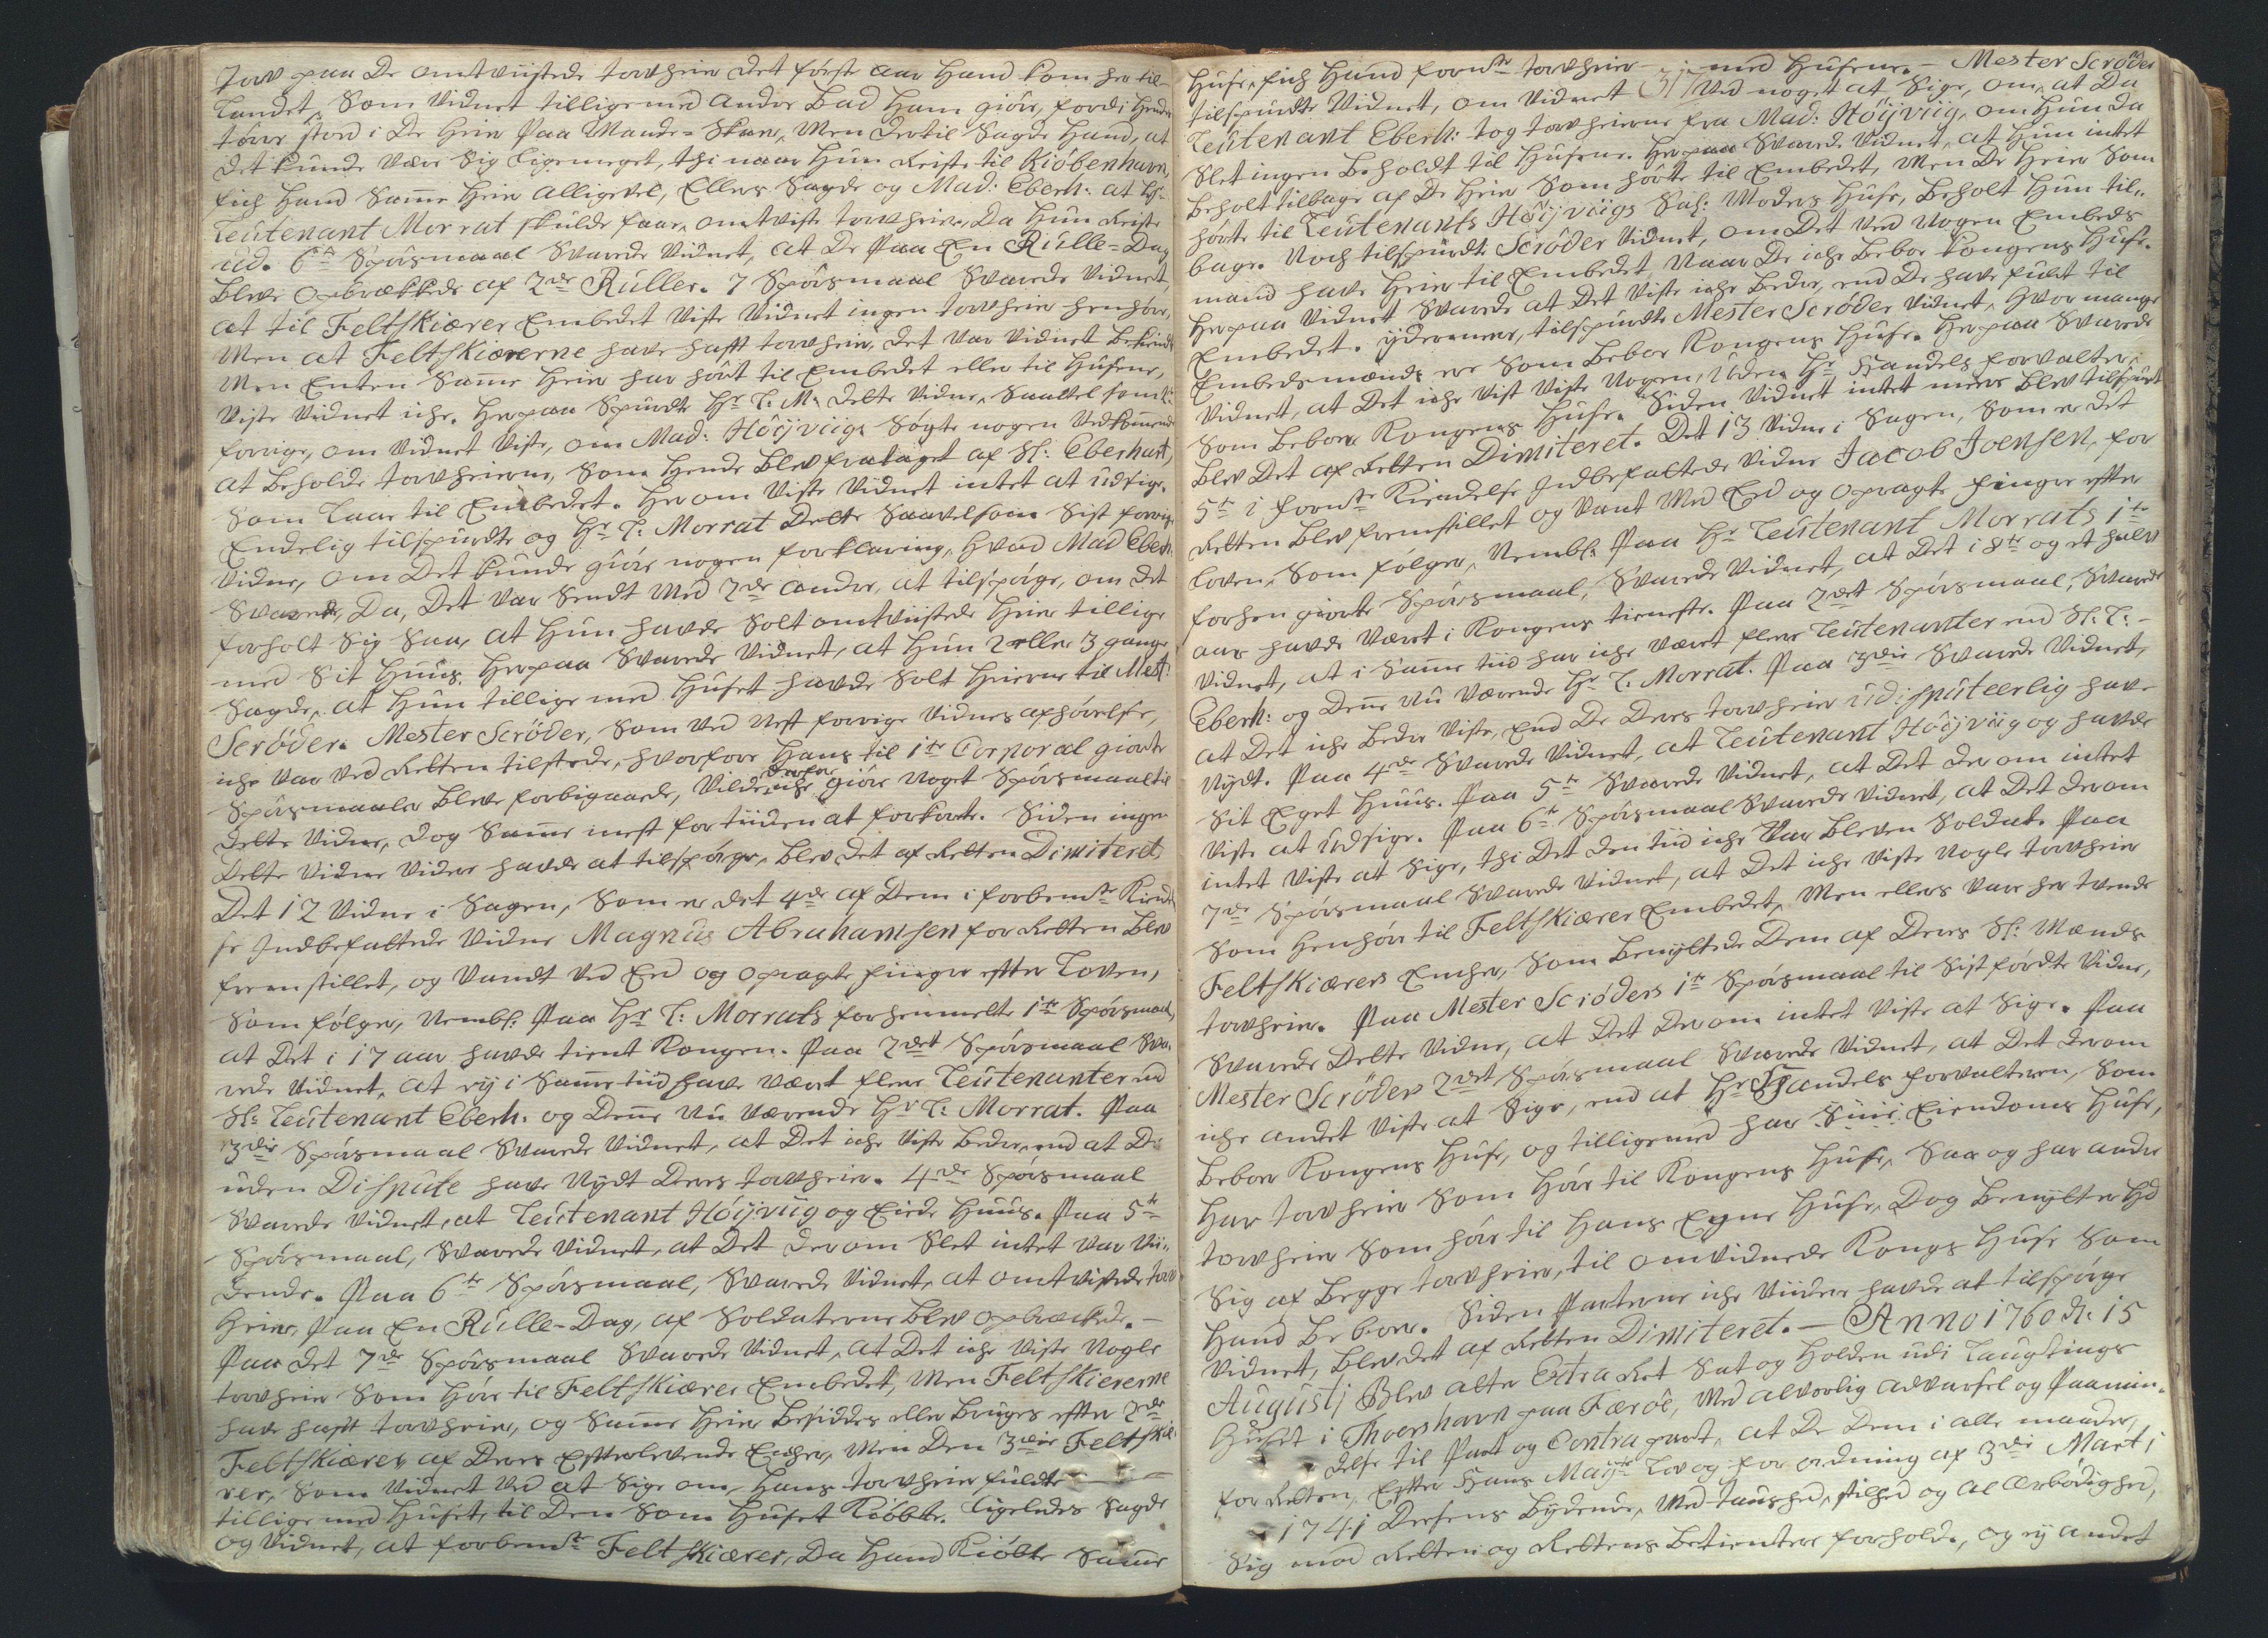 Torv paa de omtvistede torvheier det første aar hand kom her til
Landet, som Vidnet tillige med andre bad ham giøre, fordi hendes
tørre stod i de heier paa Mande=Skær, Men dertil sagde hand, at
det kunde være sig ligemeget, thi naar hun Reiste til Kiöbenhavn,
fich hand samme heie alligevel, Ellers sagde og Mad: Eberh: at Hr
Leutenant Morrat skulde faae omtviste torvheier, da hun Reiste
ud. 6te Spørsmaal svarede Vidnet, at de paa En Rulle=Dag
bleve opbrækkede af 2de Ruller. 7 Spørsmaal svarede Vidnet,
at til Feltskiærer Embedet viste Vidnet ingen torvheier henhøre,
Men at Feltskiærerne have hafft torvheier, det var Vidnet bekiendt
Men Enten samme heier har hørt til Embedet eller til Husene,
viste Vidnet iche. Herpaa spurdte Hr L: M: dette Vidne, saavel som de
forrige, om Vidnet viste, om Mad: Höijviigs søgte nogen Vedkommende
at beholde torvheierne, som hende blev frataget af Sl: Eberhart,
som Laae til Embedet. Herom viste Vidnet intet at udsige.
Endelig tilspurdte og Hr L: Morrat dette saavelsom sist forrige
Vidne, om det kunde giöre nogen forklaring, hvad Mad Eberh:
svarede, da, det var sendt med 2de andre, at tilspörge, om det
forholt sig saa, at hun havde solt omtviistede heier tillige
med sit Huus. Herpaa svarede Vidnet, at hun 2 eller 3 gange
sagde, at hun tillige med Huset havde solt heierne til Mest:
Scröder. Mester Scröder, som ved nest forrige Vidnes afhørelse,
iche var ved Retten tilstede, hvorfore hans til 1te Corporal giorte
Spørsmaaler blev forbigaaede, vilde derfor iche giöre noget Spørsmaal til
dette Vidne, dog samme mest for tiiden at forkorte. Siden ingen
dette Vidne videre havde at tilspörge, blev det af Retten Dimiteret,
Det 12 Vidne i Sagen, som er det 4de af dem i forbemte Kiendel
se Indbefattede Vidne Magnus Abrahamsen for Retten blev
fremstillet, og vandt ved Eed og opragte fiinger efter Loven,
som følger, Nembl: Paa Hr L: Morrats forhenmelte 1te Spörsmaal,
at det i 17 aar havde tient Kongen. Paa 2det Spörsmaal sva.
rede Vidnet, at eij i samme tiid have været flere Leutenanter end
Sl: Leutenant Eberh. og denne nu værende Hr L: Morrat. Paa
3die Spörsmaal svarede Vidnet, at det iche viste bedre, end at de
uden Dispute have nydt deres torvheier. 4de Spörsmaal
svarede Vidnet, at Leutenant Höijviig og Eiede Huus. Paa 5te
Spörsmaal, svarede Vidnet, at det derom slet intet var Vii..
dende. Paa 6te Spörsmaal, svarede Vidnet, at omtvistede torv
heier, paa En Rulle=Dag, af Soldaterne blev opbrækkede. —
Paa det 7de Spörsmaal svarede Vidnet, at det iche viste nogle
torvheier som høre til Feltskiærer Embedet, Men Feltskiererne
have hafft torvheier, og samme heier besiddes eller bruges efter 2de
Feltskiærer af deres Efterlevende Encher, Men den 3die Feltskiæ
rer, som Vidnet ved at sige om, hans torvheier fuldte — —
tillige med Huset, til den som Huset kiöbte. Ligeledes sagde
og Vidnet, at forbemte Feltskiærer, da hand kiöbte samme
Huse, fich hand formte torvheier — med Husene. — Mester Scröder
317
tilspurdte Vidnet, om Vidnet ved noget at sige, om, at da
Leutenant Eberh: tog torvheierne fra Mad: Höijviig, om hun da
slet ingen beholdt til Husene. Herpaa svarede Vidnet, at hun intet
beholt tilbage af de heier som hørte til Embedet, Men de heier som
hørte til Leutenants Höijviigs Sal: Moders Huse, beholt hun til..
bage. Noch tilspurdte Scröder Vidnet, om det ved nogen Embeds
mand have heier til Embedet, naar de iche beboe Kongens Huse.
Herpaa Vidnet svarede at det viste iche bedre, end de have fuldt til
Embedet. Ydermeere, tilspurdte Mester Scröder Vidnet, hvor mange
Embedsmænd er som beboe Kongens Huse. Herpaa svarede
Vidnet, at det iche vist viste nogen, uden Hr Handels forvalter,
som beboer Kongens Huse. Siden Vidnet intet mere blev tilspurt
blev det af Retten Dimiteret. Det 13 Vidne i Sagen, som er det
5te i formte Kiendelse Indbefattede Vidne Jacob Joensen, for
Retten blev fremstillet og vant med Eed og opragte finger efter
Loven, som følger, Nembl: Paa Hr Leutenant Morrats 1te
forhen giorte Spörsmaal, svarede Vidnet, at det i 8te og et halv
aar havde været i Kongens tieneste. Paa 2det Spörsmaal, svarede
Vidnet, at i samme tiid har iche været flere Leutenanter end Sl: L: —
Eberh: og denne nu værende Hr L: Morrat. Paa 3die svarede Vidnet,
at det iche bedre viste, end de deres torvheier udisputeerlig have
nydt. Paa 4de svarede Vidnet, at Leutenant Höijviig og havde
sit Eget Huus. Paa 5te svarede Vidnet, at det der om intet
viste at udsige. Paa 6te Spörsmaal svarede Vidnet, at det derom
intet viste at sige, thi det den tiid iche var bleven Soldat. Paa
7de Spörsmaal svarede Vidnet, at det iche viste nogle torvheier
som henhøre til Feltskiærer Embedet, Men ellers var her tvende
Feltskiærers Encher, som benyttede dem af deres Sl: Mænds
torvheier. Paa Mester Scröders 1te Spörsmaal til sist førdte Vidne,
svarede dette Vidne, at det derom intet viste at sige. Paa
Mester Scröders 2det Spörsmaal svarede Vidnet, at det derom
iche andet viste at sige, end at Hr Handels forvalteren, som
beboer Kongens Huse, og tillige med har Siine Eiendoms Huse,
har torvheier som høre til Kongens Huse, saa og har andre
torvheier som høre til hans Egne Huse, dog benytter Hd
sig af begge torvheier, til omvidnede Kongs Huse som
hand beboer. Siden Parterne iche viidere havde at tilspörge
Vidnet, blev det af Retten Dimiteret. — Anno 1760 d: 15
Augustj Blev atter Extra Ret sat og holden udi Laugtings
Huset i Thorshavn paa Færöe, med alvorlig advarsel og Paamin.
delse til Part og Contra part, at de dem i alle maader,
for Retten, Efter Hans Mayts Lov og for ordning af 3die Martj
1741 Dessens lydende, med taushed, stilhed og al ærbödighed,
sig mod Retten og Rettens betientere forholde, og eij andet